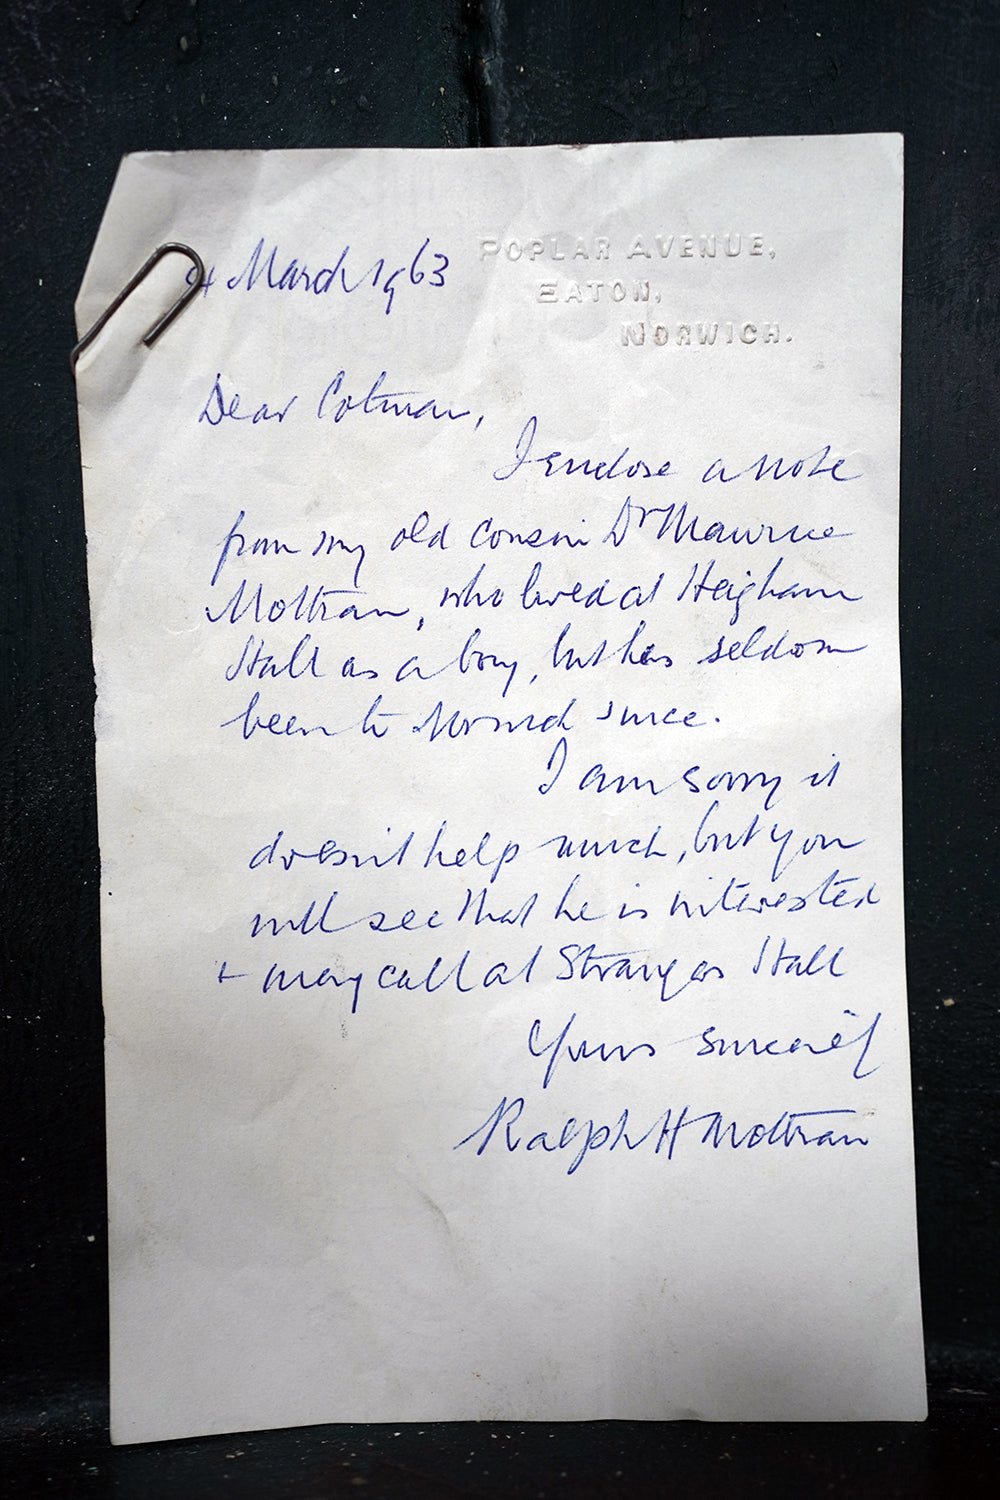 POPLAR AVENUE,
EATON,
NORWICH.
4 March 1963
Dear Cotman,
I enclose a note
from my old cousin Dr Maurice
Mottram, who lived at Heigham
Hall as a boy, but has seldom
been to Norwich since.
I am sorry it
doesn't help much, but you
will see that he is interested
+ may call at Strangers Hall
Yours sincerely
Ralph H Mottram